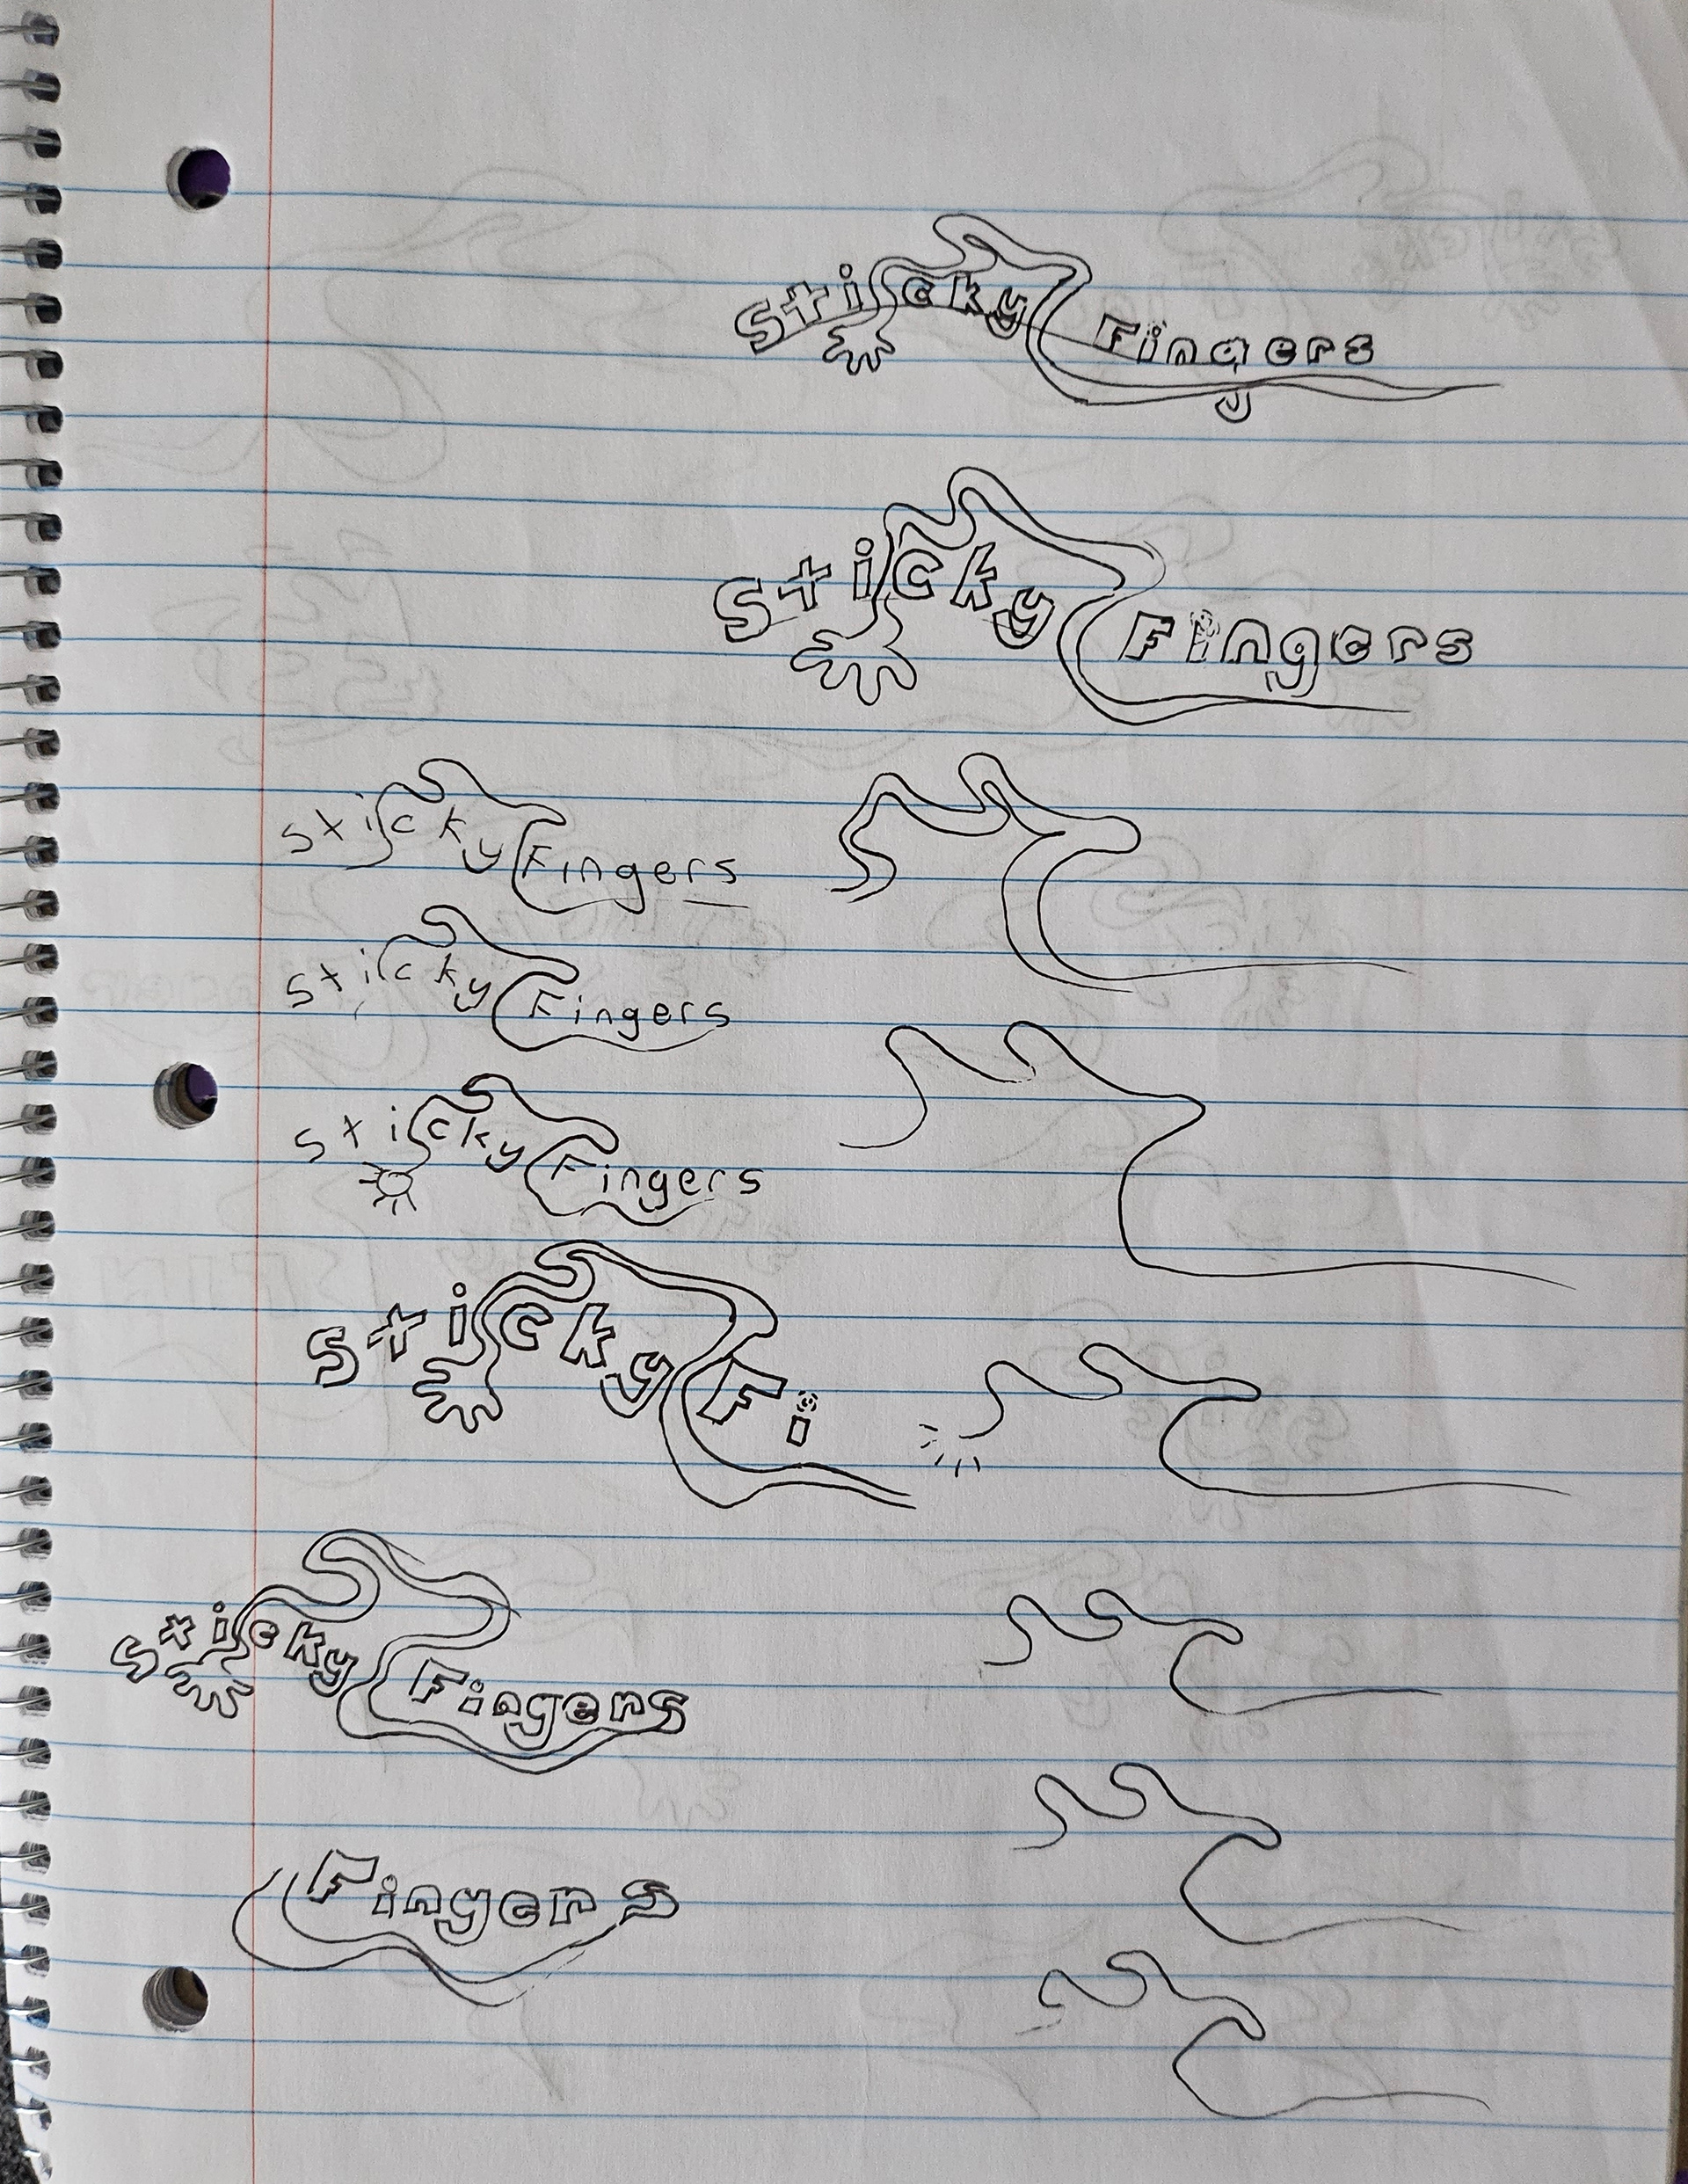 Sticky Fingers
Sticky Fingers
Sticky Fingers
Sticky Fingers
Sticky Fingers
Sticky Fi
Sticky Fingers
Fingers